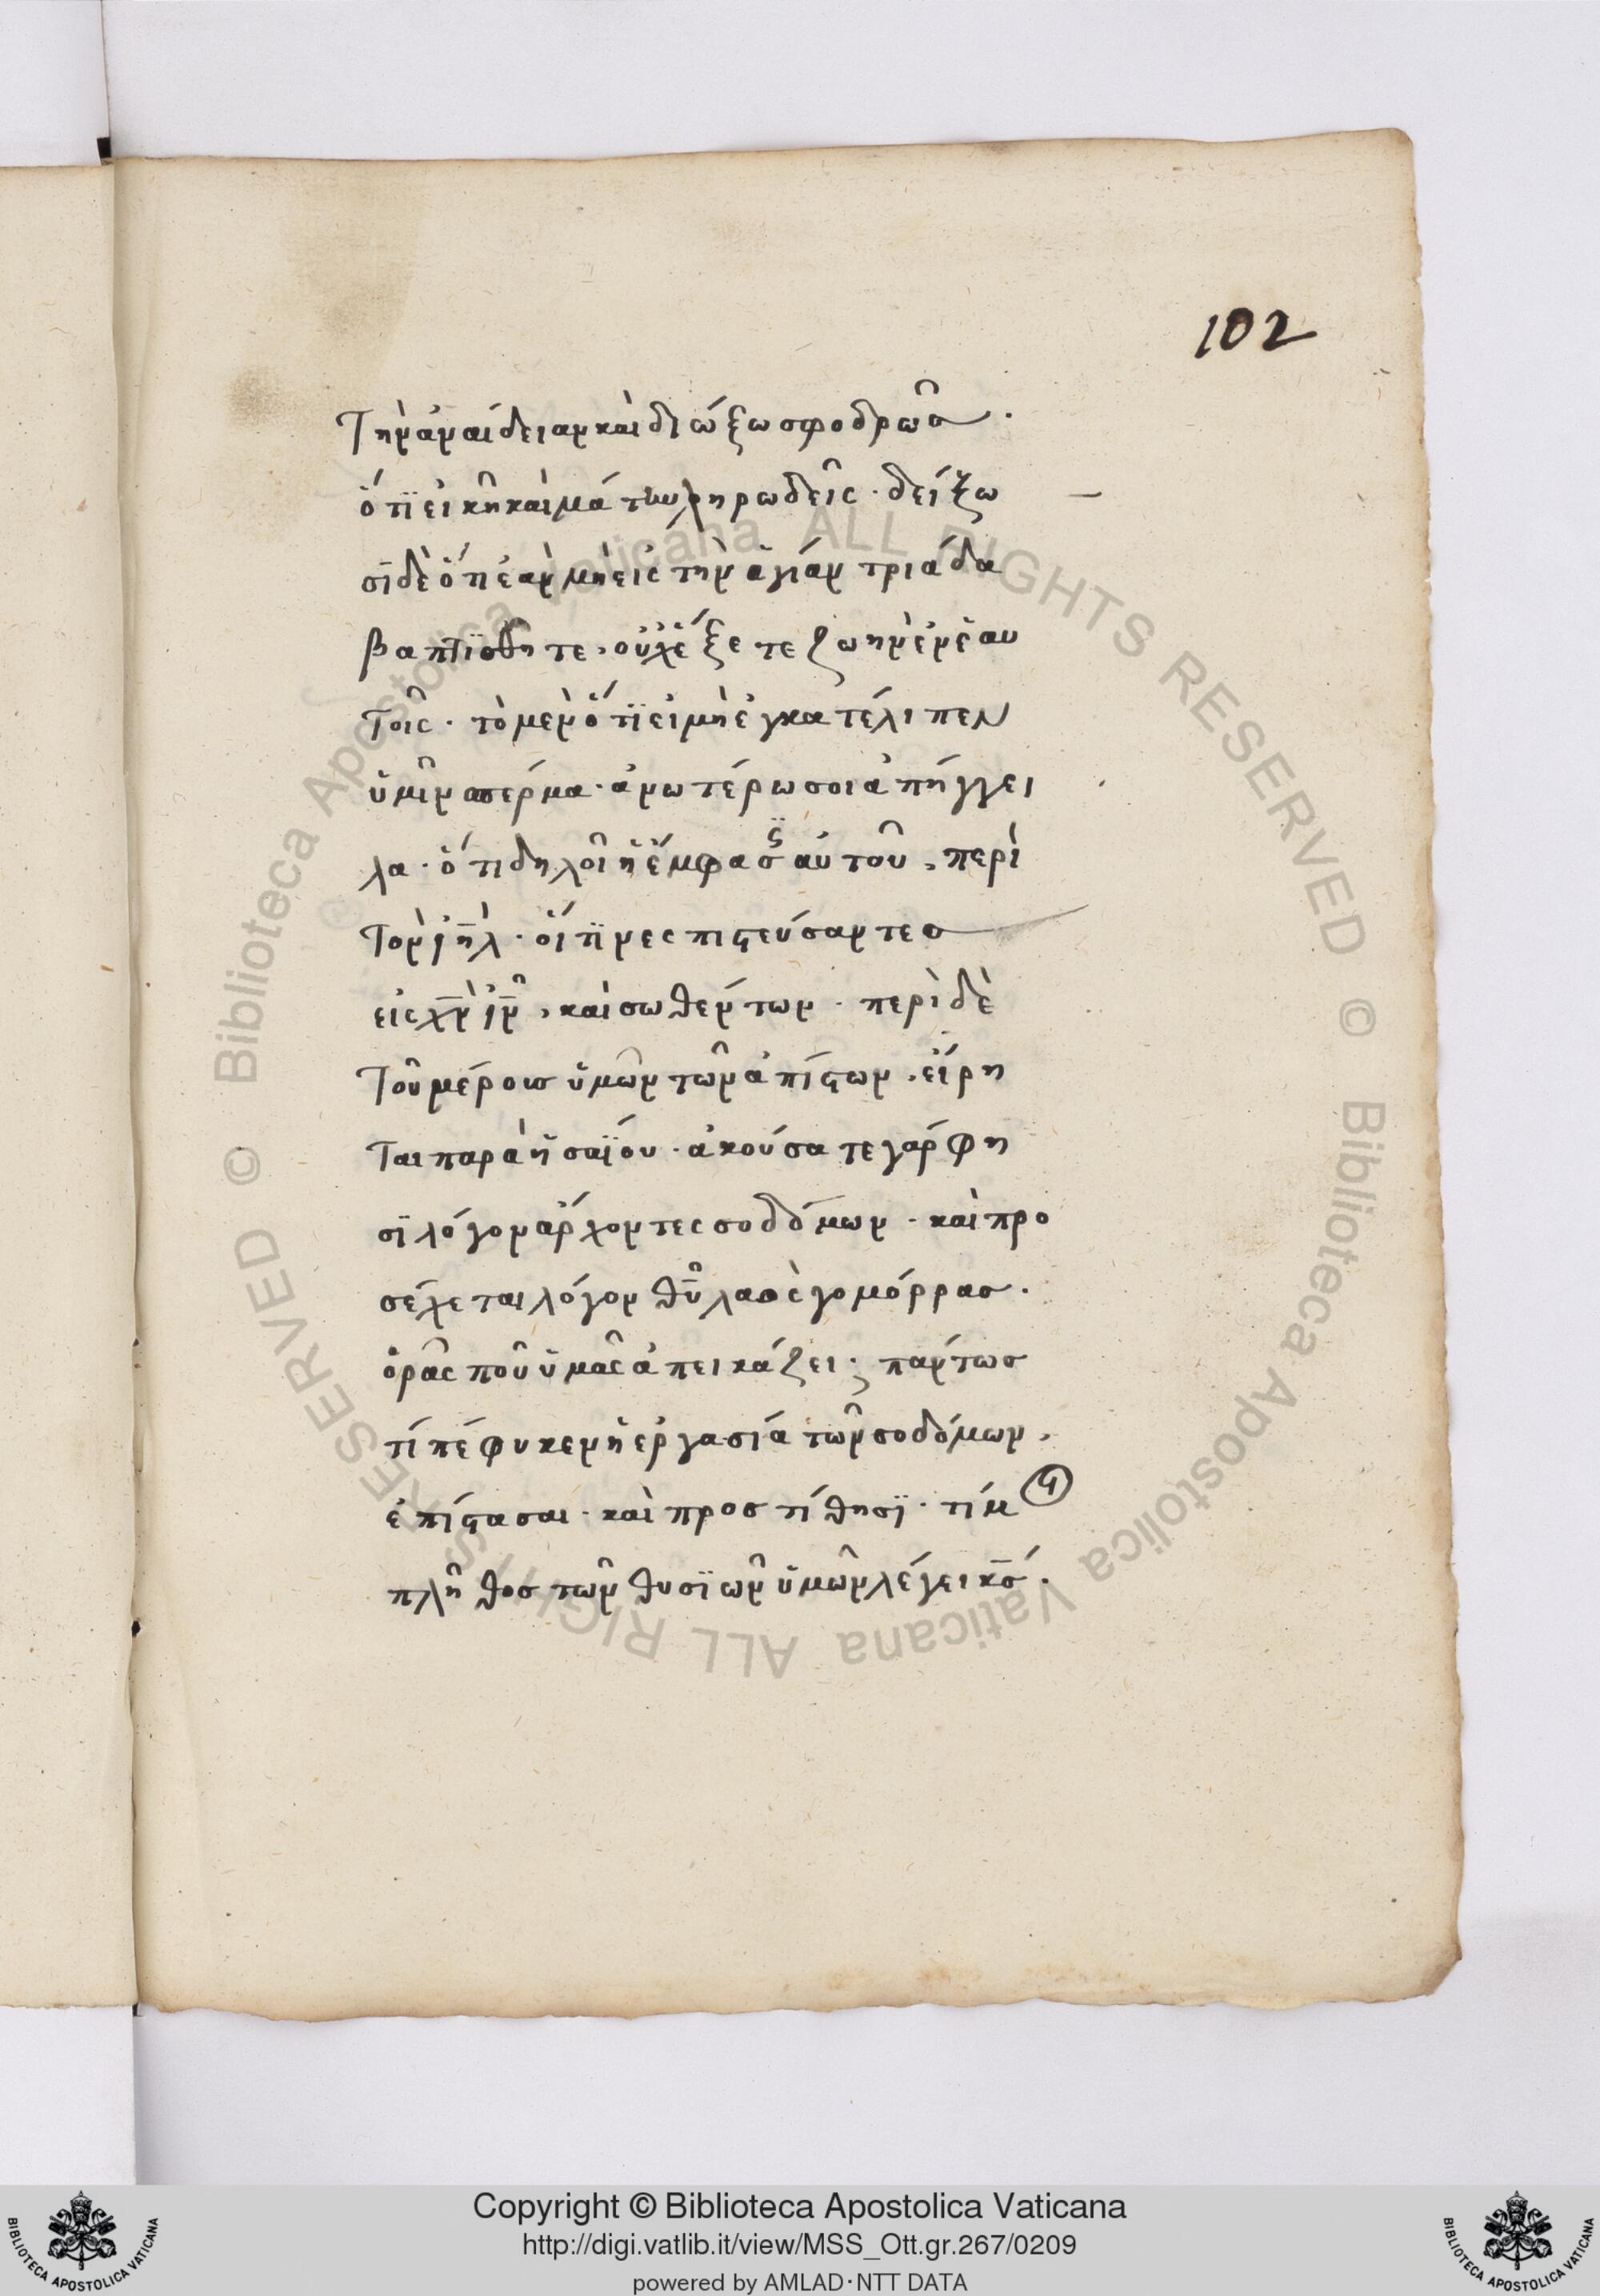 102
Τὴν ἀναίδειαν καὶ διώξω σφοδρῶσ ·
ὅτϊ εἰκῆ καὶ μάτην ληρωδεῖς · δείξω
σϊ δὲ ὅτι ἐὰν μὴ εἰς τὴν ἁγίαν τριάδα
βαπτϊσθῆτε, οὐχ ἕξετε ζωὴν ἐν ἑαυ
τοῖς · τὸ μὲν ὅτϊ εἰ μὴ ἐγκατέλιπεν
ὑμῖν σπέρμα · ἀνωτέρω σοι ἀπήγγει
λα · ὅτι δηλοῖ ἡ ἔμφασϊς αὐτοῦ, περὶ
τὸν ἰη̅λ · οἵτϊνες πιστεύσαντεσ
εἰς χ̅ν ι̅ν, καὶ σωθέντων · περὶ δὲ
τοῦ μέρουσ ὑμῶν τῶν ἀπίστων, εἴρη
ται παρὰ ἡσαΐου · ἀκούσατε γάρ φη
σϊ λόγον ἄρχοντες σοδόμων · καὶ προ
σέχεται λόγον θ̅υ λαὸς γομόρρασ ·
ὁρᾶς ποῦ ὑμᾶς ἀπεικάζει ; πάντωσ
τί πέφυκεν ἡ ἐργασία τῶν σοδόμων,
ἐπίστασαι · καὶ προστίθησϊ · τί μοι
πλῆθοσ τῶν θυσϊῶν ὑμῶν λέγει κ̅σ ·
Copyright © Biblioteca Apostolica Vaticana
http://digi.vatlib.it/view/MSS_Ott.gr.267/0209
powered by AMLAD·NTT DATA
BIBLIOTECA APOSTOLICA VATICANA
BIBLIOTECA APOSTOLICA VATICANA
© Biblioteca Apostolica Vaticana ALL RIGHTS RESERVED © Biblioteca Apostolica Vaticana ALL RIGHTS RESERVED